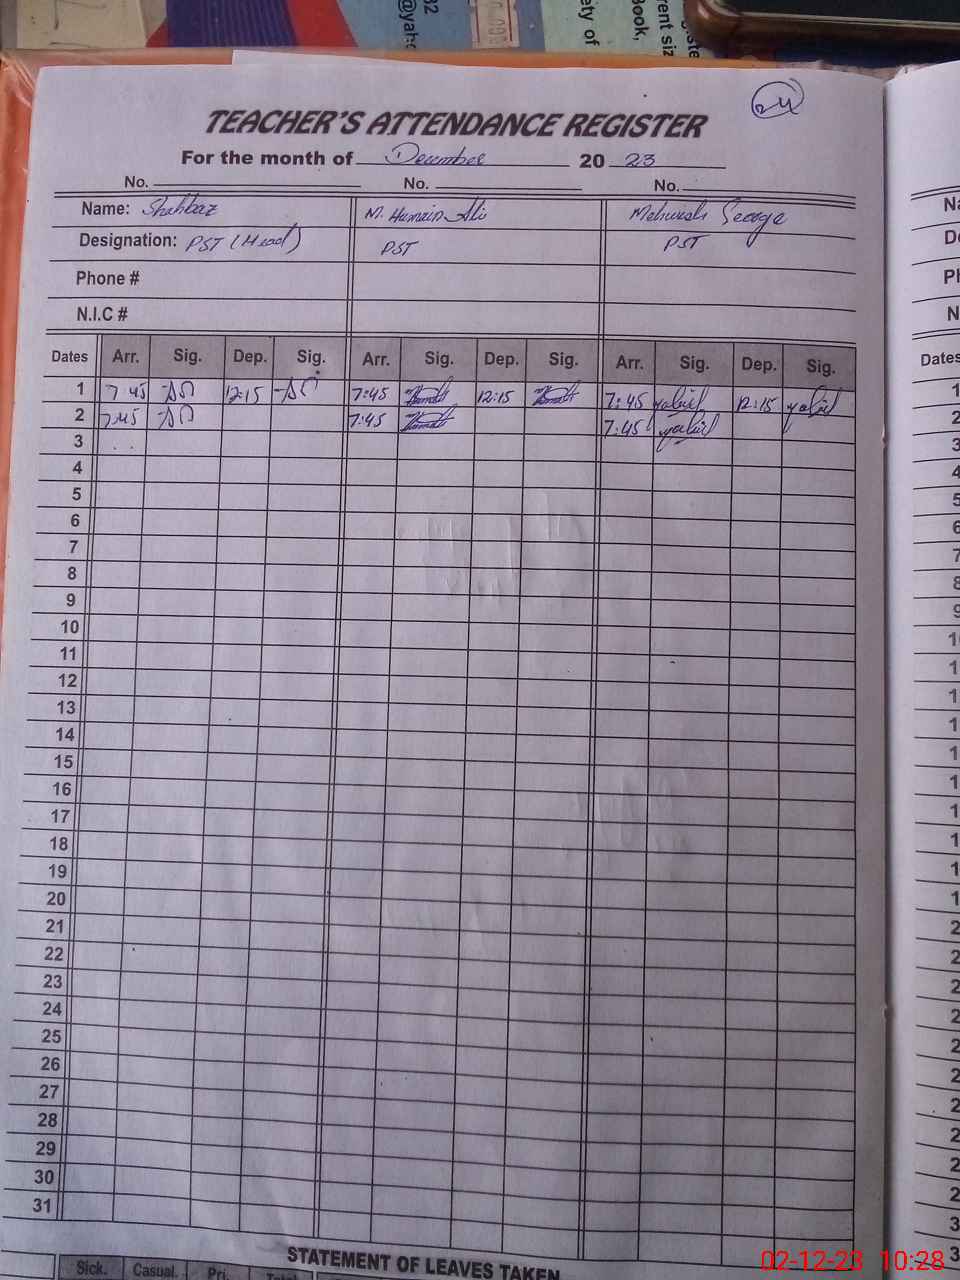 32
@yaho
ety of
Book,
rent siz
24
TEACHER'S ATTENDANCE REGISTER
For the month of December 20 23
No. No. No.
Name: Shahbaz M. Husnain Ali Mehwish George
Designation: PST (Head) PST PST
Phone #
N.I.C #
Dates Arr. Sig. Dep. Sig. Arr. Sig. Dep. Sig. Arr. Sig. Dep. Sig.
1 7 45 12:15 7:45 12:15 7:45 12:15
2 7:45 7:45 7:45
3
4
5
6
7
8
9
10
11
12
13
14
15
16
17
18
19
20
21
22
23
24
25
26
27
28
29
30
31
STATEMENT OF LEAVES TAKEN
Sick. Casual. Pri. Total
Dates
02-12-23 10:28